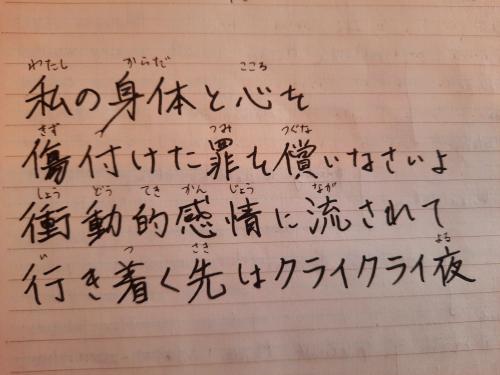 わたし からだ こころ
私の身体と心を
きず つ つみ つぐな
傷付けた罪を償いなさいよ
しょう どう てき かん じょう なが
衝動的感情に流されて
い つ さき よる
行き着く先はクライクライ夜